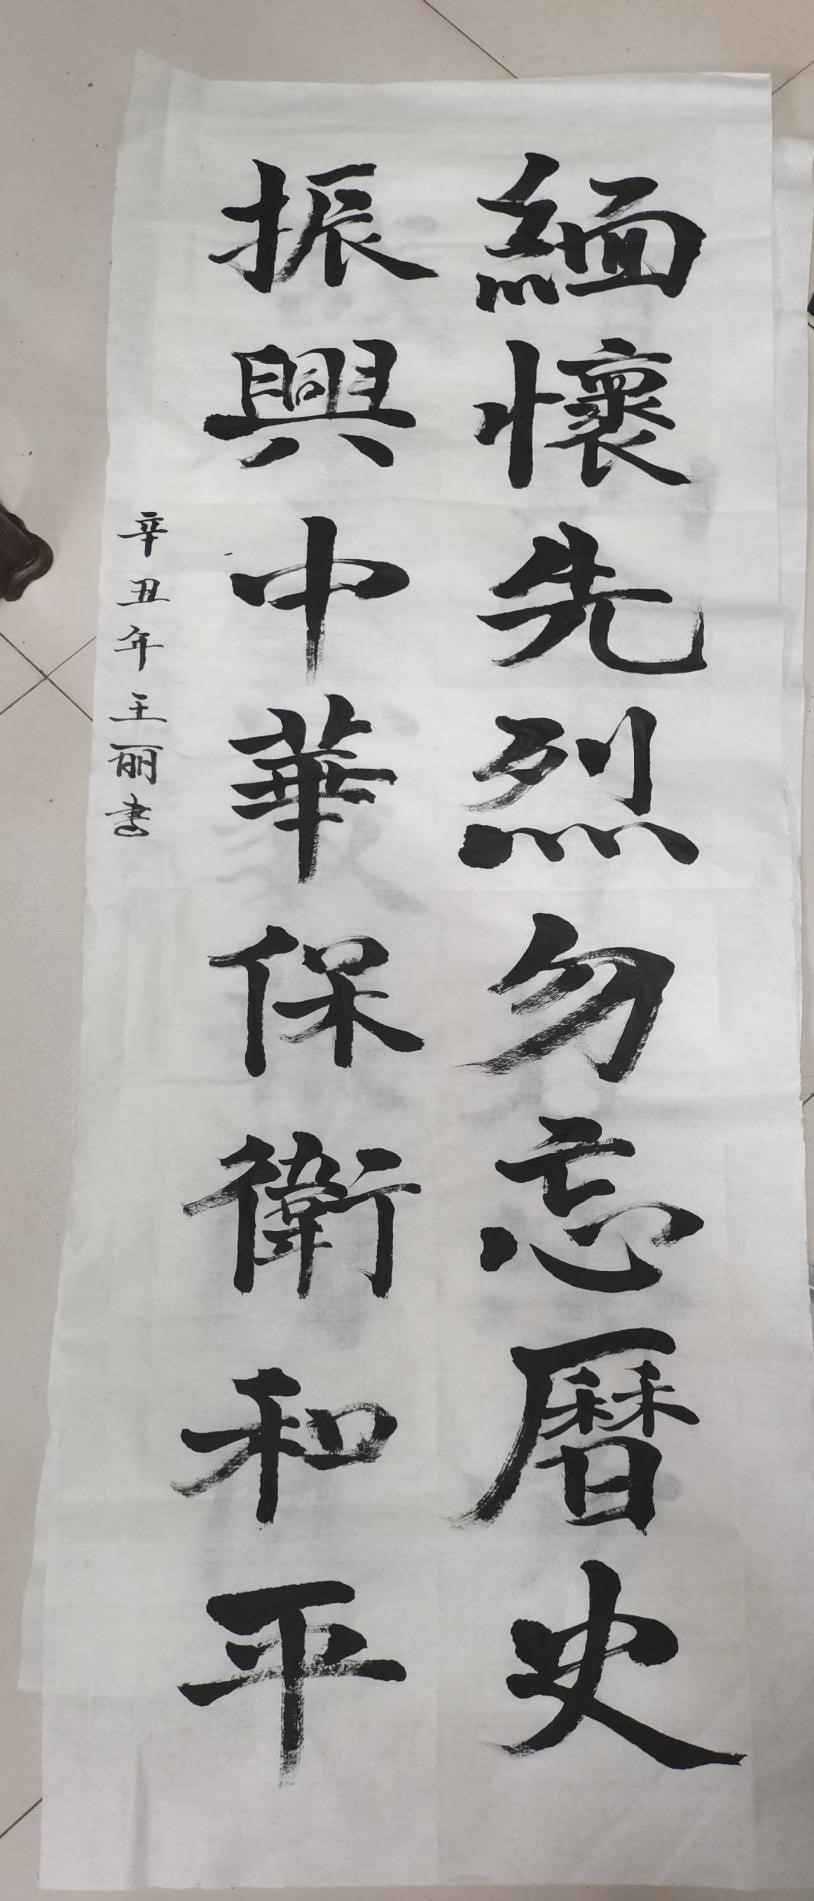 緬懷先烈勿忘曆史
振興中華保衛和平
辛丑年王丽书